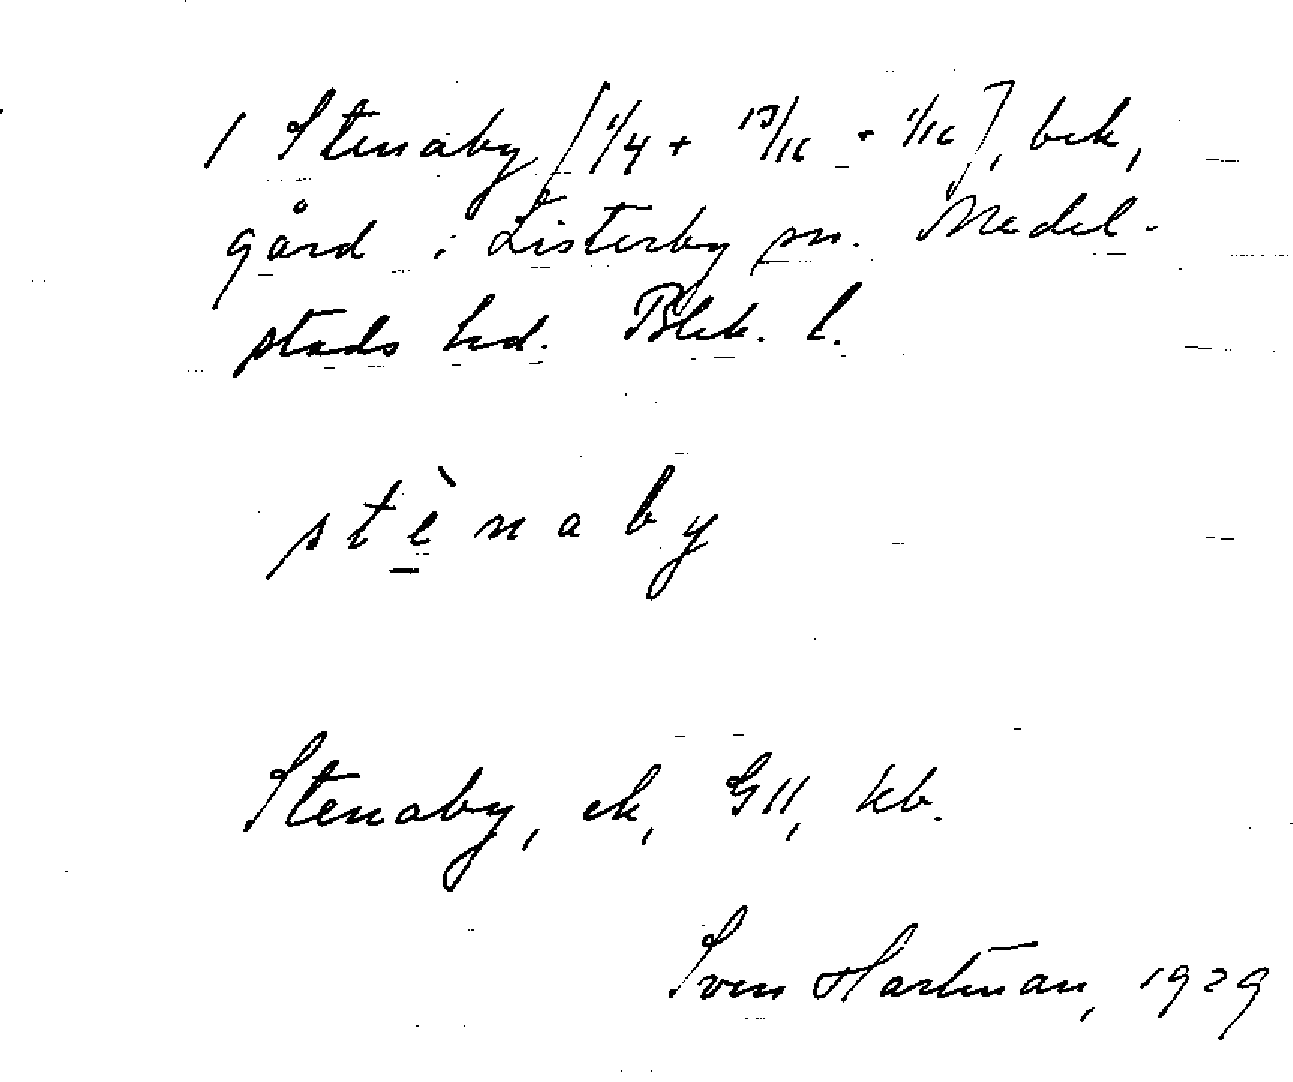 1 Stenaby [1/4 + 13/16 + 1/16], bek,
gård i Listerby sn. Medel-
stads hd. Blek. l.
stènaby
Stenaby, ek, GII, kb.
Sven Hartman, 1929